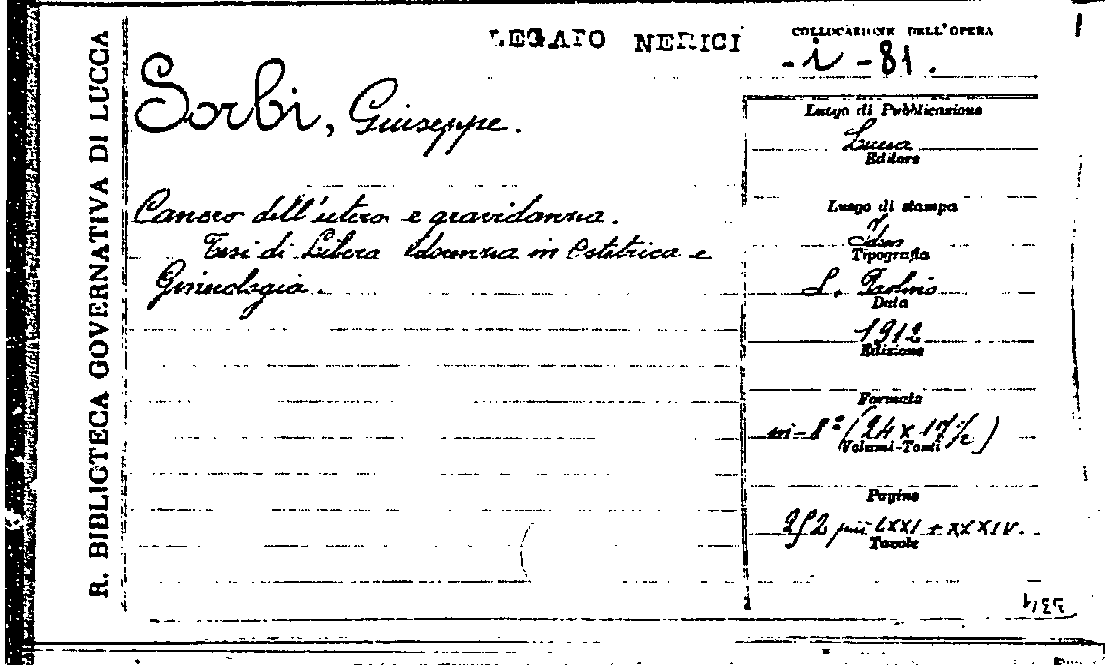 R. BIBLIOTECA GOVERNATIVA DI LUCCA
LEGATO NERICI
COLLOCAZIONE DELL'OPERA
- i - 81.
Sorbi, Giuseppe.
Cancro dell'utero e gravidanza.
Tesi di Libera docenza in Ostetrica e
Ginecologia.
Luogo di Pubblicazione
Lucca
Editore
Luogo di stampa
Idem
Tipografia
S. Paolino
Data
1912
Edizione
Formato
in-8º (24 x 17½)
Volumi-Tomi
Pagine
252 più LXXI + XXXIV.
Tavole